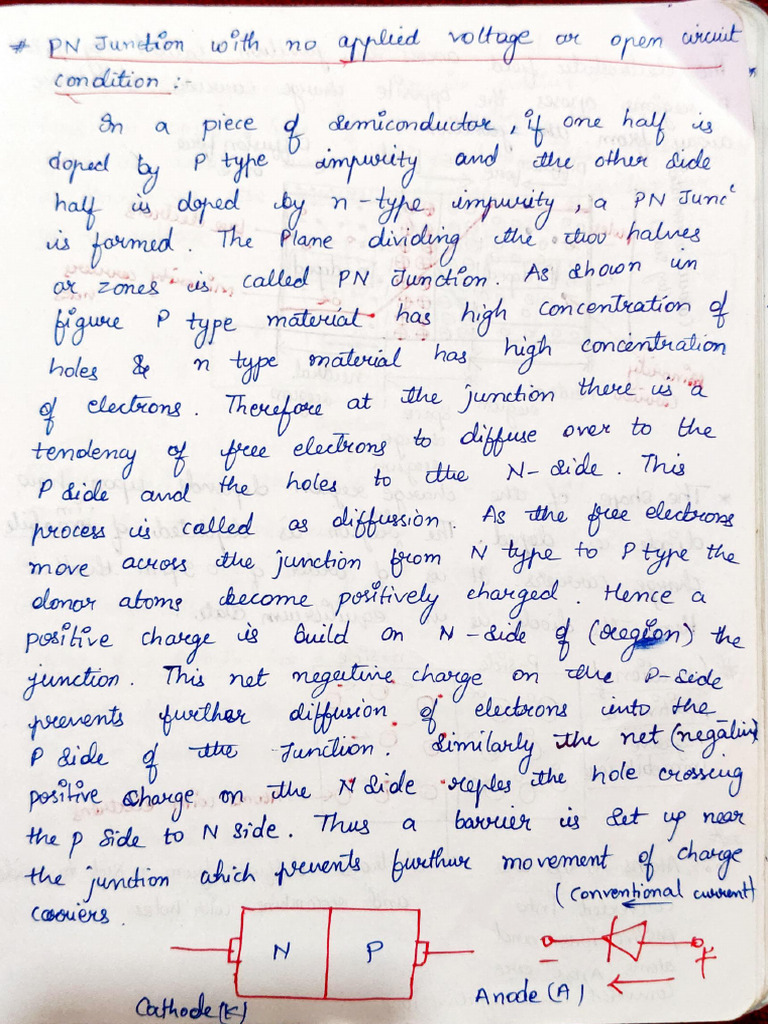 # PN Junction with no applied voltage or open circuit
condition :-
In a piece of semiconductor, if one half is
doped by P type impurity and the other side
half is doped by n-type impurity, a PN Junc'
is formed. The Plane dividing the two halves
or zones is called PN Junction. As shown in
figure P type material has high concentration of
holes & n type material has high concentration
of electrons. Therefore at the junction there is a
tendency of free electrons to diffuse over to the
P side and the holes to the N-side. This
process is called as diffussion. As the free electrons
move across the junction from N type to P type the
donor atoms become positively charged. Hence a
positive charge is build on N-side of (region) the
junction. This net negative charge on the P-side
prevents further diffusion of electrons into the
P side of the Junction. Similarly the net (negative)
positive charge on the N side reples the hole crossing
the P side to N side. Thus a barrier is set up near
the junction which prevents furthur movement of charge
carriers.
(Conventional current)
N P
- +
Cathode (K) Anode (A)